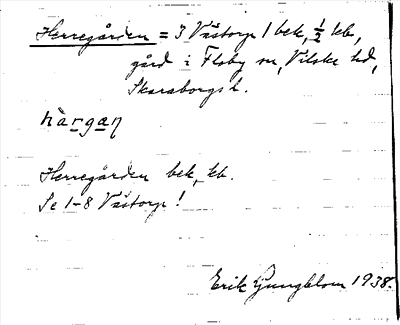 Herregården = 3 Västorp 1 bek, ½ kb,
gård i Floby sn, Vilske hd,
Skaraborgs l.
hàrgaŋ
Herregården bek, kb.
Se 1-8 Västorp!
Erik Ljungblom 1938.